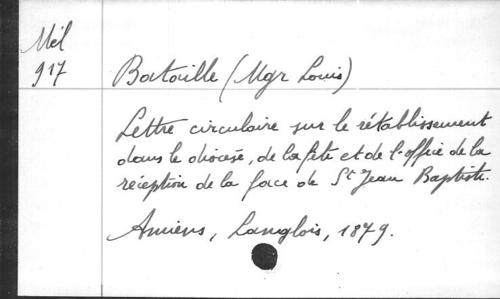 Mél
917
Bataille (Mgr Louis)
Lettre circulaire sur le rétablissement
dans le diocèse, de la fête et de l'office de la
réception de la face de St Jean Baptiste.
Amiens, Langlois, 1879.